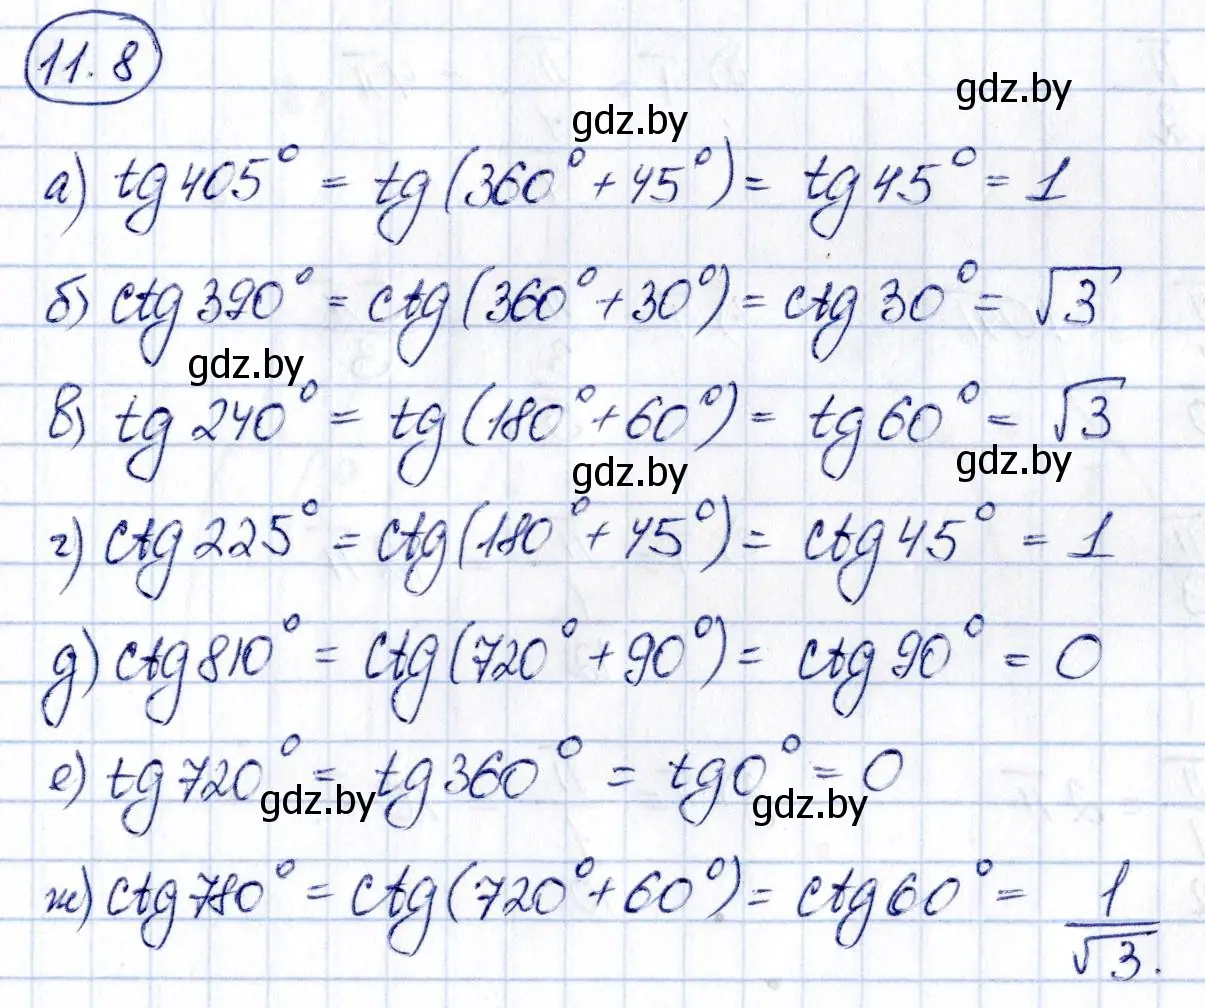 11.8
gdz.by
gdz.by
а) tg 405° = tg (360° + 45°) = tg 45° = 1
б) ctg 390° = ctg (360° + 30°) = ctg 30° = √3
gdz.by
в) tg 240° = tg (180° + 60°) = tg 60° = √3
gdz.by
gdz.by
г) ctg 225° = ctg (180° + 45°) = ctg 45° = 1
д) ctg 810° = ctg (720° + 90°) = ctg 90° = 0
е) tg 720° = tg 360° = tg 0° = 0
gdz.by
gdz.by
ж) ctg 780° = ctg (720° + 60°) = ctg 60° = 1/√3.